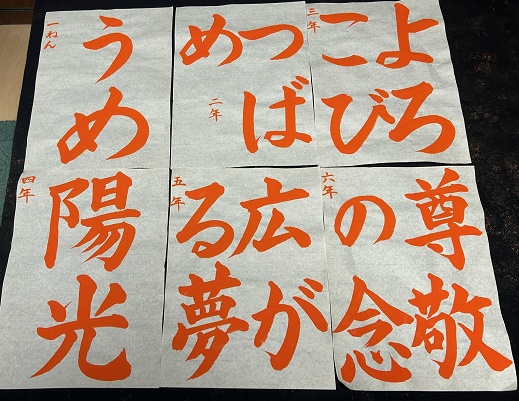 一ねん
うめ
二年
つば
め
三年
よろ
こび
四年
陽光
五年
広が
る夢
六年
尊敬
の念